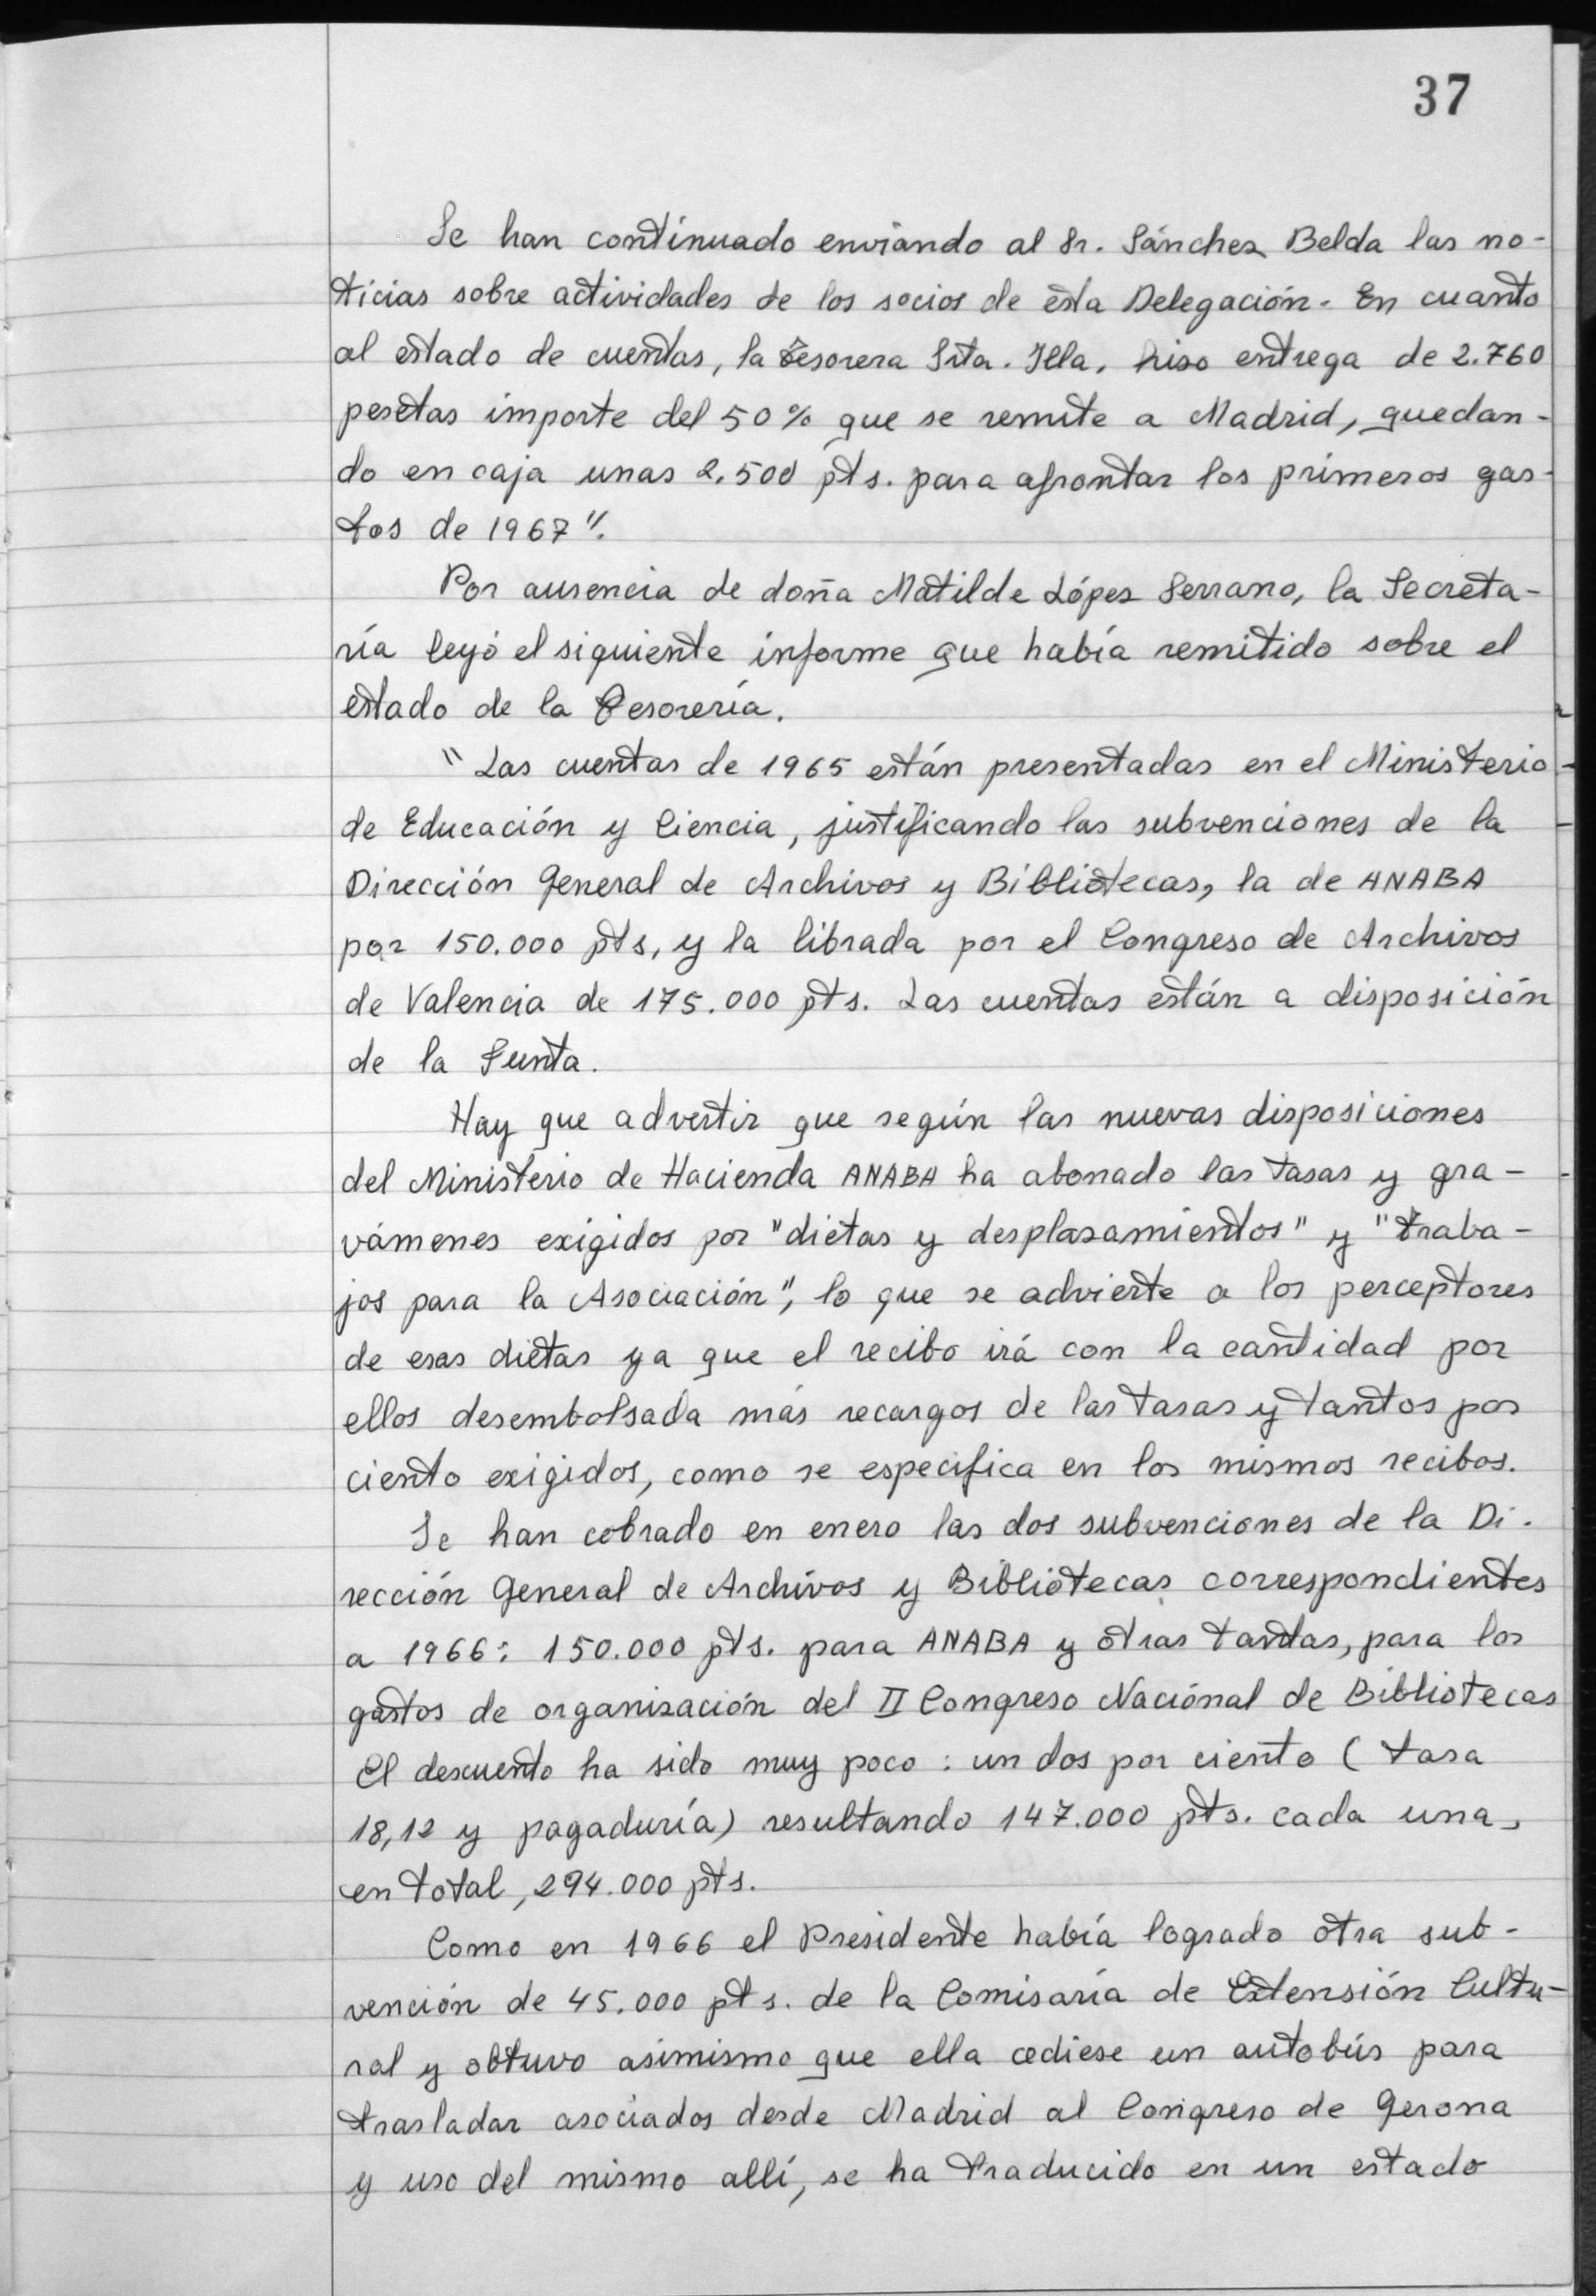 37
Se han continuado enviando al Sr. Sánchez Belda las no-
ticias sobre actividades de los socios de esta Delegación. En cuanto
al estado de cuentas, la tesorera Srta. Illa, hizo entrega de 2.760
pesetas importe del 50% que se remite a Madrid, quedan-
do en caja unas 2.500 pts. para afrontar los primeros gas-
tos de 1967".
Por ausencia de doña Matilde López Serrano, la Secreta-
ría leyó el siguiente informe que había remitido sobre el
estado de la Tesorería.
"Las cuentas de 1965 están presentadas en el Ministerio
de Educación y Ciencia, justificando las subvenciones de la
Dirección General de Archivos y Bibliotecas, la de ANABA
por 150.000 pts, y la librada por el Congreso de Archivos
de Valencia de 175.000 pts. Las cuentas están a disposición
de la Junta.
Hay que advertir que según las nuevas disposiciones
del Ministerio de Hacienda ANABA ha abonado las tasas y gra-
vámenes exigidos por "dietas y desplazamientos" y "traba-
jos para la Asociación", lo que se advierte a los perceptores
de esas dietas ya que el recibo irá con la cantidad por
ellos desembolsada más recargos de las tasas y tantos por
ciento exigidos, como se especifica en los mismos recibos.
Se han cobrado en enero las dos subvenciones de la Di-
rección General de Archivos y Bibliotecas correspondientes
a 1966: 150.000 pts. para ANABA y otras tantas, para los
gastos de organización del II Congreso Nacional de Bibliotecas
El descuento ha sido muy poco: un dos por ciento (tasa
18,12 y pagaduría) resultando 147.000 pts. cada una,
en total, 294.000 pts.
Como en 1966 el Presidente había logrado otra sub-
vención de 45.000 pts. de la Comisaría de Extensión Cultu-
ral y obtuvo asimismo que ella cediese un autobús para
trasladar asociados desde Madrid al Congreso de Gerona
y uso del mismo allí, se ha traducido en un estado